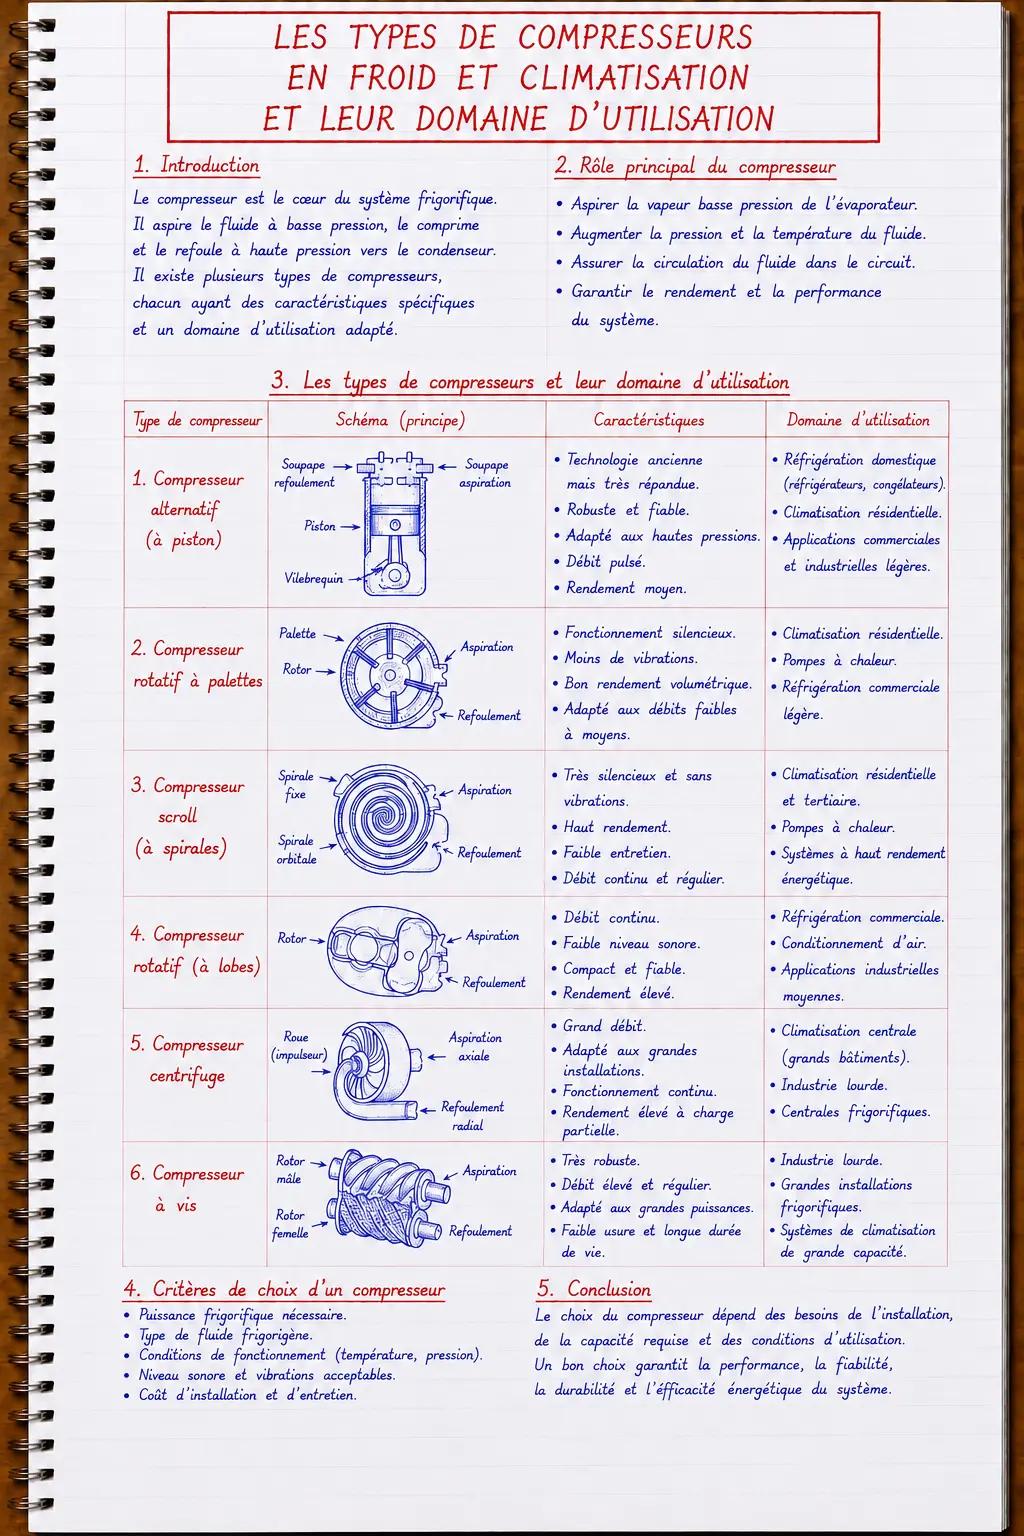 LES TYPES DE COMPRESSEURS
EN FROID ET CLIMATISATION
ET LEUR DOMAINE D'UTILISATION
1. Introduction
Le compresseur est le cœur du système frigorifique.
Il aspire le fluide à basse pression, le comprime
et le refoule à haute pression vers le condenseur.
Il existe plusieurs types de compresseurs,
chacun ayant des caractéristiques spécifiques
et un domaine d'utilisation adapté.
2. Rôle principal du compresseur
• Aspirer la vapeur basse pression de l'évaporateur.
• Augmenter la pression et la température du fluide.
• Assurer la circulation du fluide dans le circuit.
• Garantir le rendement et la performance
du système.
3. Les types de compresseurs et leur domaine d'utilisation
Type de compresseur
Schéma (principe)
Caractéristiques
Domaine d'utilisation
1. Compresseur
alternatif
(à piston)
Soupape
refoulement
Soupape
aspiration
Piston
Vilebrequin
• Technologie ancienne
mais très répandue.
• Robuste et fiable.
• Adapté aux hautes pressions.
• Débit pulsé.
• Rendement moyen.
• Réfrigération domestique
(réfrigérateurs, congélateurs).
• Climatisation résidentielle.
• Applications commerciales
et industrielles légères.
2. Compresseur
rotatif à palettes
Palette
Rotor
Aspiration
Refoulement
• Fonctionnement silencieux.
• Moins de vibrations.
• Bon rendement volumétrique.
• Adapté aux débits faibles
à moyens.
• Climatisation résidentielle.
• Pompes à chaleur.
• Réfrigération commerciale
légère.
3. Compresseur
scroll
(à spirales)
Spirale
fixe
Spirale
orbitale
Aspiration
Refoulement
• Très silencieux et sans
vibrations.
• Haut rendement.
• Faible entretien.
• Débit continu et régulier.
• Climatisation résidentielle
et tertiaire.
• Pompes à chaleur.
• Systèmes à haut rendement
énergétique.
4. Compresseur
rotatif (à lobes)
Rotor
Aspiration
Refoulement
• Débit continu.
• Faible niveau sonore.
• Compact et fiable.
• Rendement élevé.
• Réfrigération commerciale.
• Conditionnement d'air.
• Applications industrielles
moyennes.
5. Compresseur
centrifuge
Roue
(impulseur)
Aspiration
axiale
Refoulement
radial
• Grand débit.
• Adapté aux grandes
installations.
• Fonctionnement continu.
• Rendement élevé à charge
partielle.
• Climatisation centrale
(grands bâtiments).
• Industrie lourde.
• Centrales frigorifiques.
6. Compresseur
à vis
Rotor
mâle
Rotor
femelle
Aspiration
Refoulement
• Très robuste.
• Débit élevé et régulier.
• Adapté aux grandes puissances.
• Faible usure et longue durée
de vie.
• Industrie lourde.
• Grandes installations
frigorifiques.
• Systèmes de climatisation
de grande capacité.
4. Critères de choix d'un compresseur
• Puissance frigorifique nécessaire.
• Type de fluide frigorigène.
• Conditions de fonctionnement (température, pression).
• Niveau sonore et vibrations acceptables.
• Coût d'installation et d'entretien.
5. Conclusion
Le choix du compresseur dépend des besoins de l'installation,
de la capacité requise et des conditions d'utilisation.
Un bon choix garantit la performance, la fiabilité,
la durabilité et l'éfficacité énergétique du système.